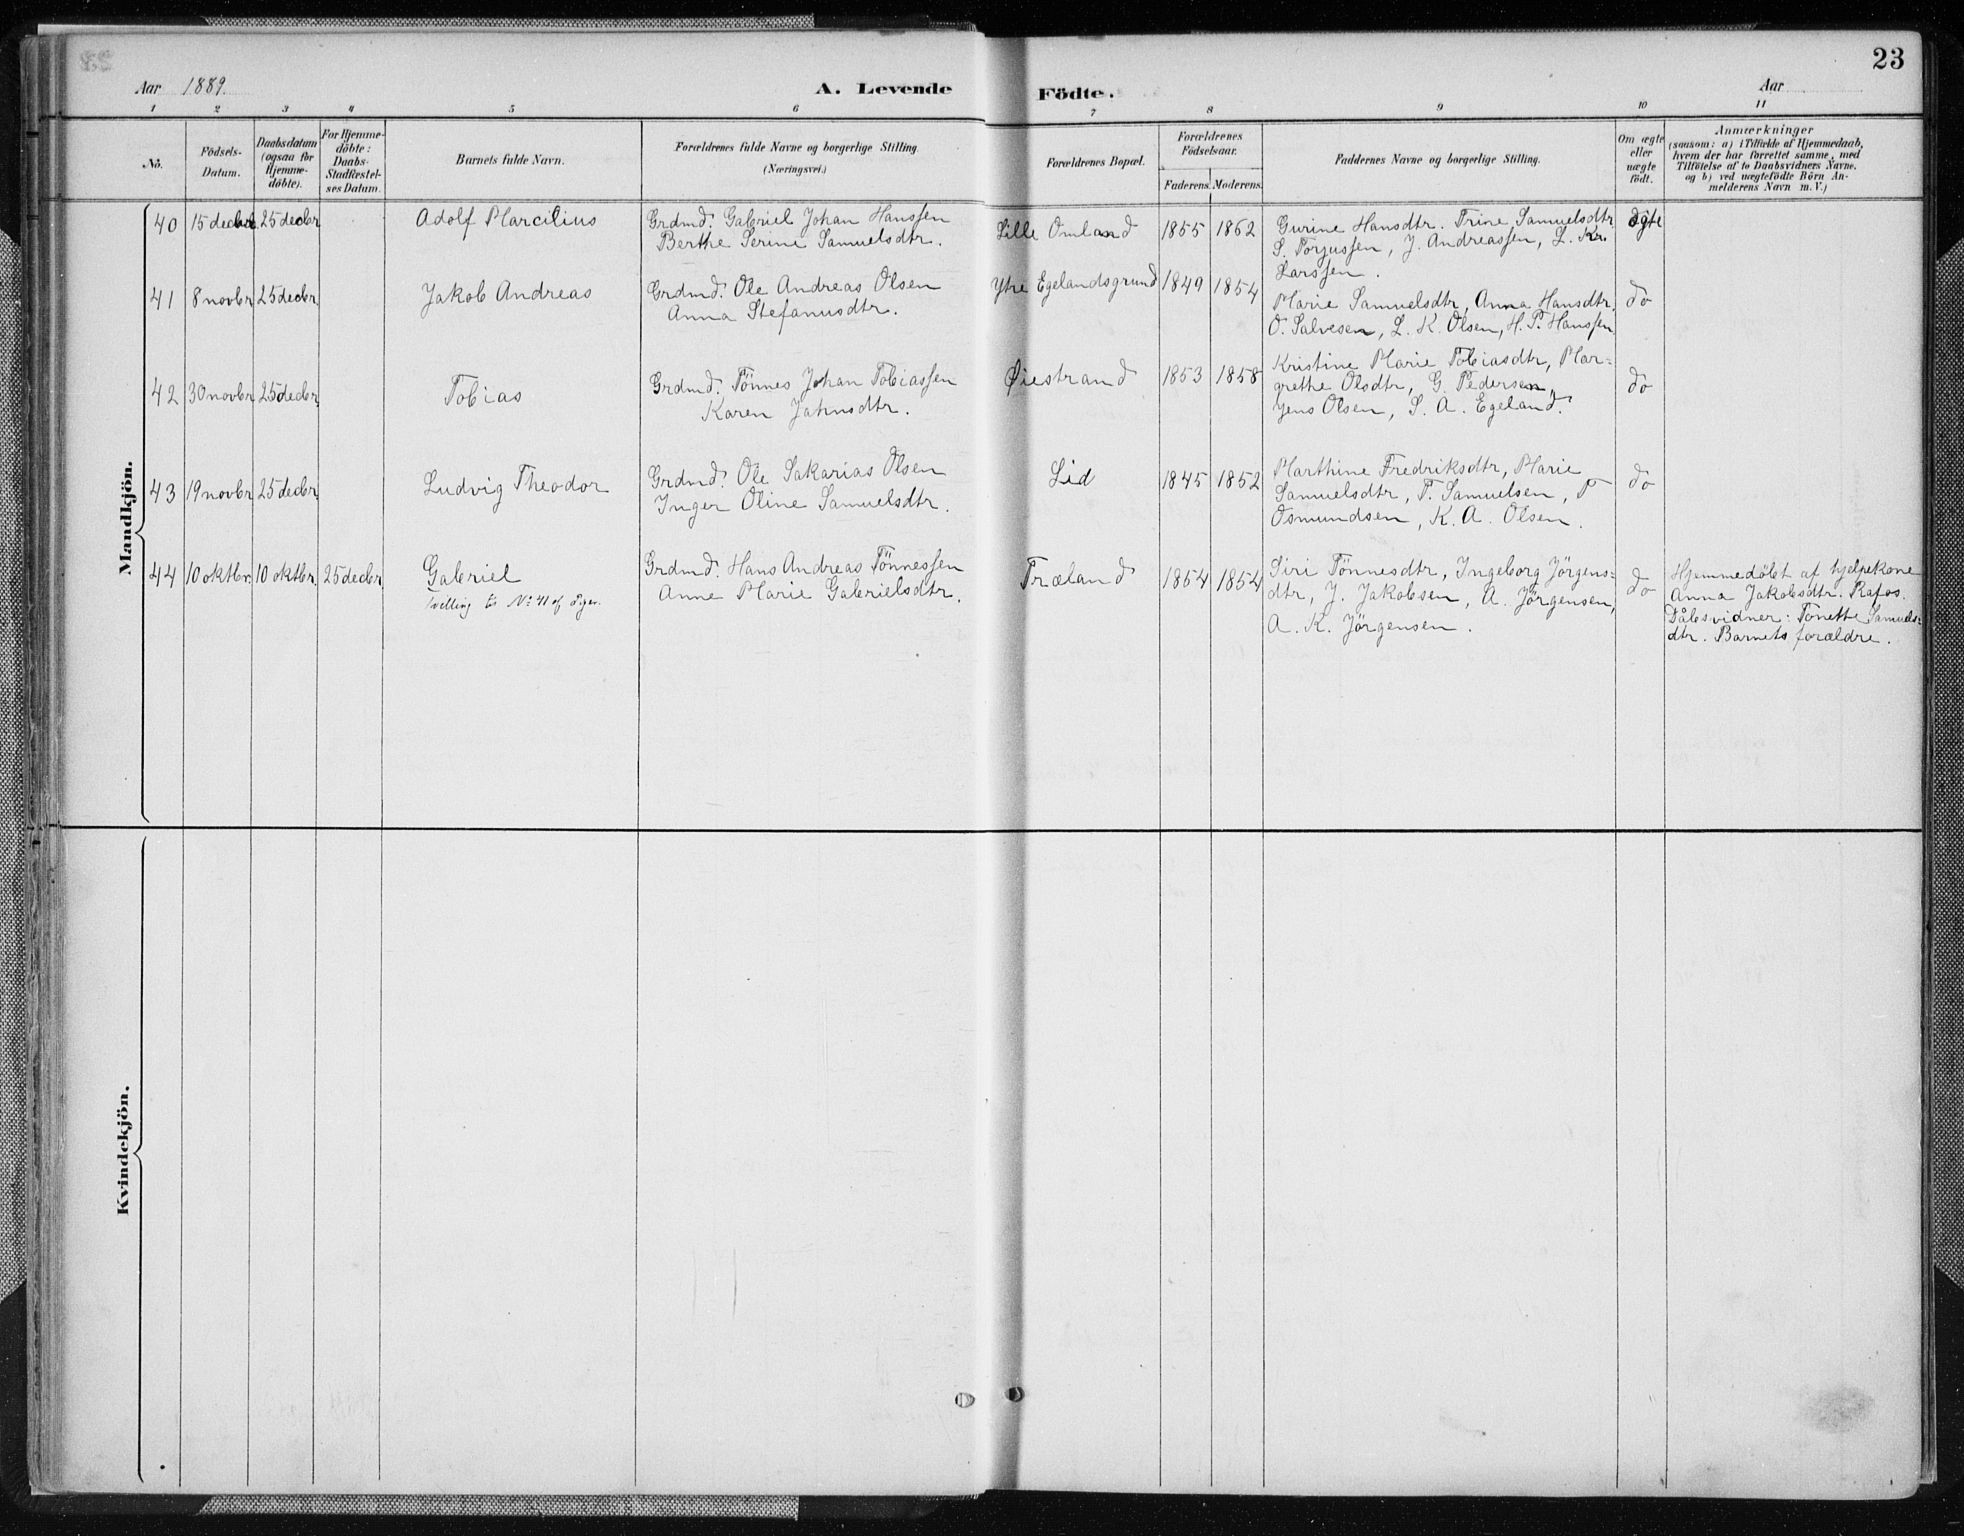 23
Aar 1889.
A. Levende Födte.
Aar
1 2 3 4 5 6 7 8 9 10 11
No.
Födsels-
Datum.
Daabsdatum
(ogsaa for
Hjemme-
döbte).
For Hjemme-
döbte:
Daabs-
Stadfæstel-
ses Datum.
Barnets fulde Navn.
Forældrenes fulde Navne og borgerlige Stilling.
(Næringsvei.)
Forældrenes Bopæl.
Forældrenes
Födselsaar.
Faderens. Moderens.
Faddernes Navne og borgerlige Stilling.
Om ægte
eller
uægte
födt.
Anmærkninger
(saasom: a) i Tilfælde af Hjemmedaab,
hvem der har forrettet samme, med
Tilföielse af to Daabsvidners Navne.
og b) ved uægtefödte Börn An-
melderens Navn m. V.)
Mandkjön.
40 15 decbr 25 decbr
Adolf Marcilius
Grdmd. Gabriel Johan Hanssen
Berthe Serine Samuelsdtr.
Lille Omland
1855 1862
Gurine Hansdtr. Trine Samuelsdtr
S. Torjussen, J. Andreassen, L. Kr.
Larssen.
ægte
41 8 novbr 25 decbr
Jakob Andreas
Grdmd. Ole Andreas Olsen
Anna Stefanusdtr.
Ytre Egelandsgrund
1849 1854
Marie Samuelsdtr, Anna Hansdtr,
O. Salvesen, L. K. Olsen, H. P. Hanssen
do
42 30 novbr 25 decbr.
Tobias
Grdmd. Tönnes Johan Tobiassen
Karen Jahnsdtr.
Øiestrand
1853 1858
Kristine Marie Tobiasdtr, Mar=
grethe Olsdtr, G. Pedersen,
Jens Olsen, S. A. Egeland.
do
43 19 novbr 25 decbr
Ludvig Theodor
Grdmd. Ole Sakarias Olsen
Inger Oline Samuelsdtr.
Lid
1845 1852
Marthine Fredriksdtr, Marie
Samuelsdtr, T. Samuelsen, T
Osmundsen, K. A. Olsen.
do
44 10 oktbr. 10 oktbr. 25 decbr.
Gabriel
Tvilling til No 41 af Piger.
Grdmd. Hans Andreas Tönnessen
Anne Marie Gabrielsdtr.
Træland
1854 1854
Siri Tönnesdtr, Ingeborg Jörgens=
dtr, J. Jakobsen, A. Jörgensen,
A. K. Jörgensen.
do
Hjemmedöbt af hjelpekone
Anna Jakobsdtr. Rafos.
Dåbsvidner: Tonette Samuels=
dtr. Barnets forældre.
Kvindekjön.